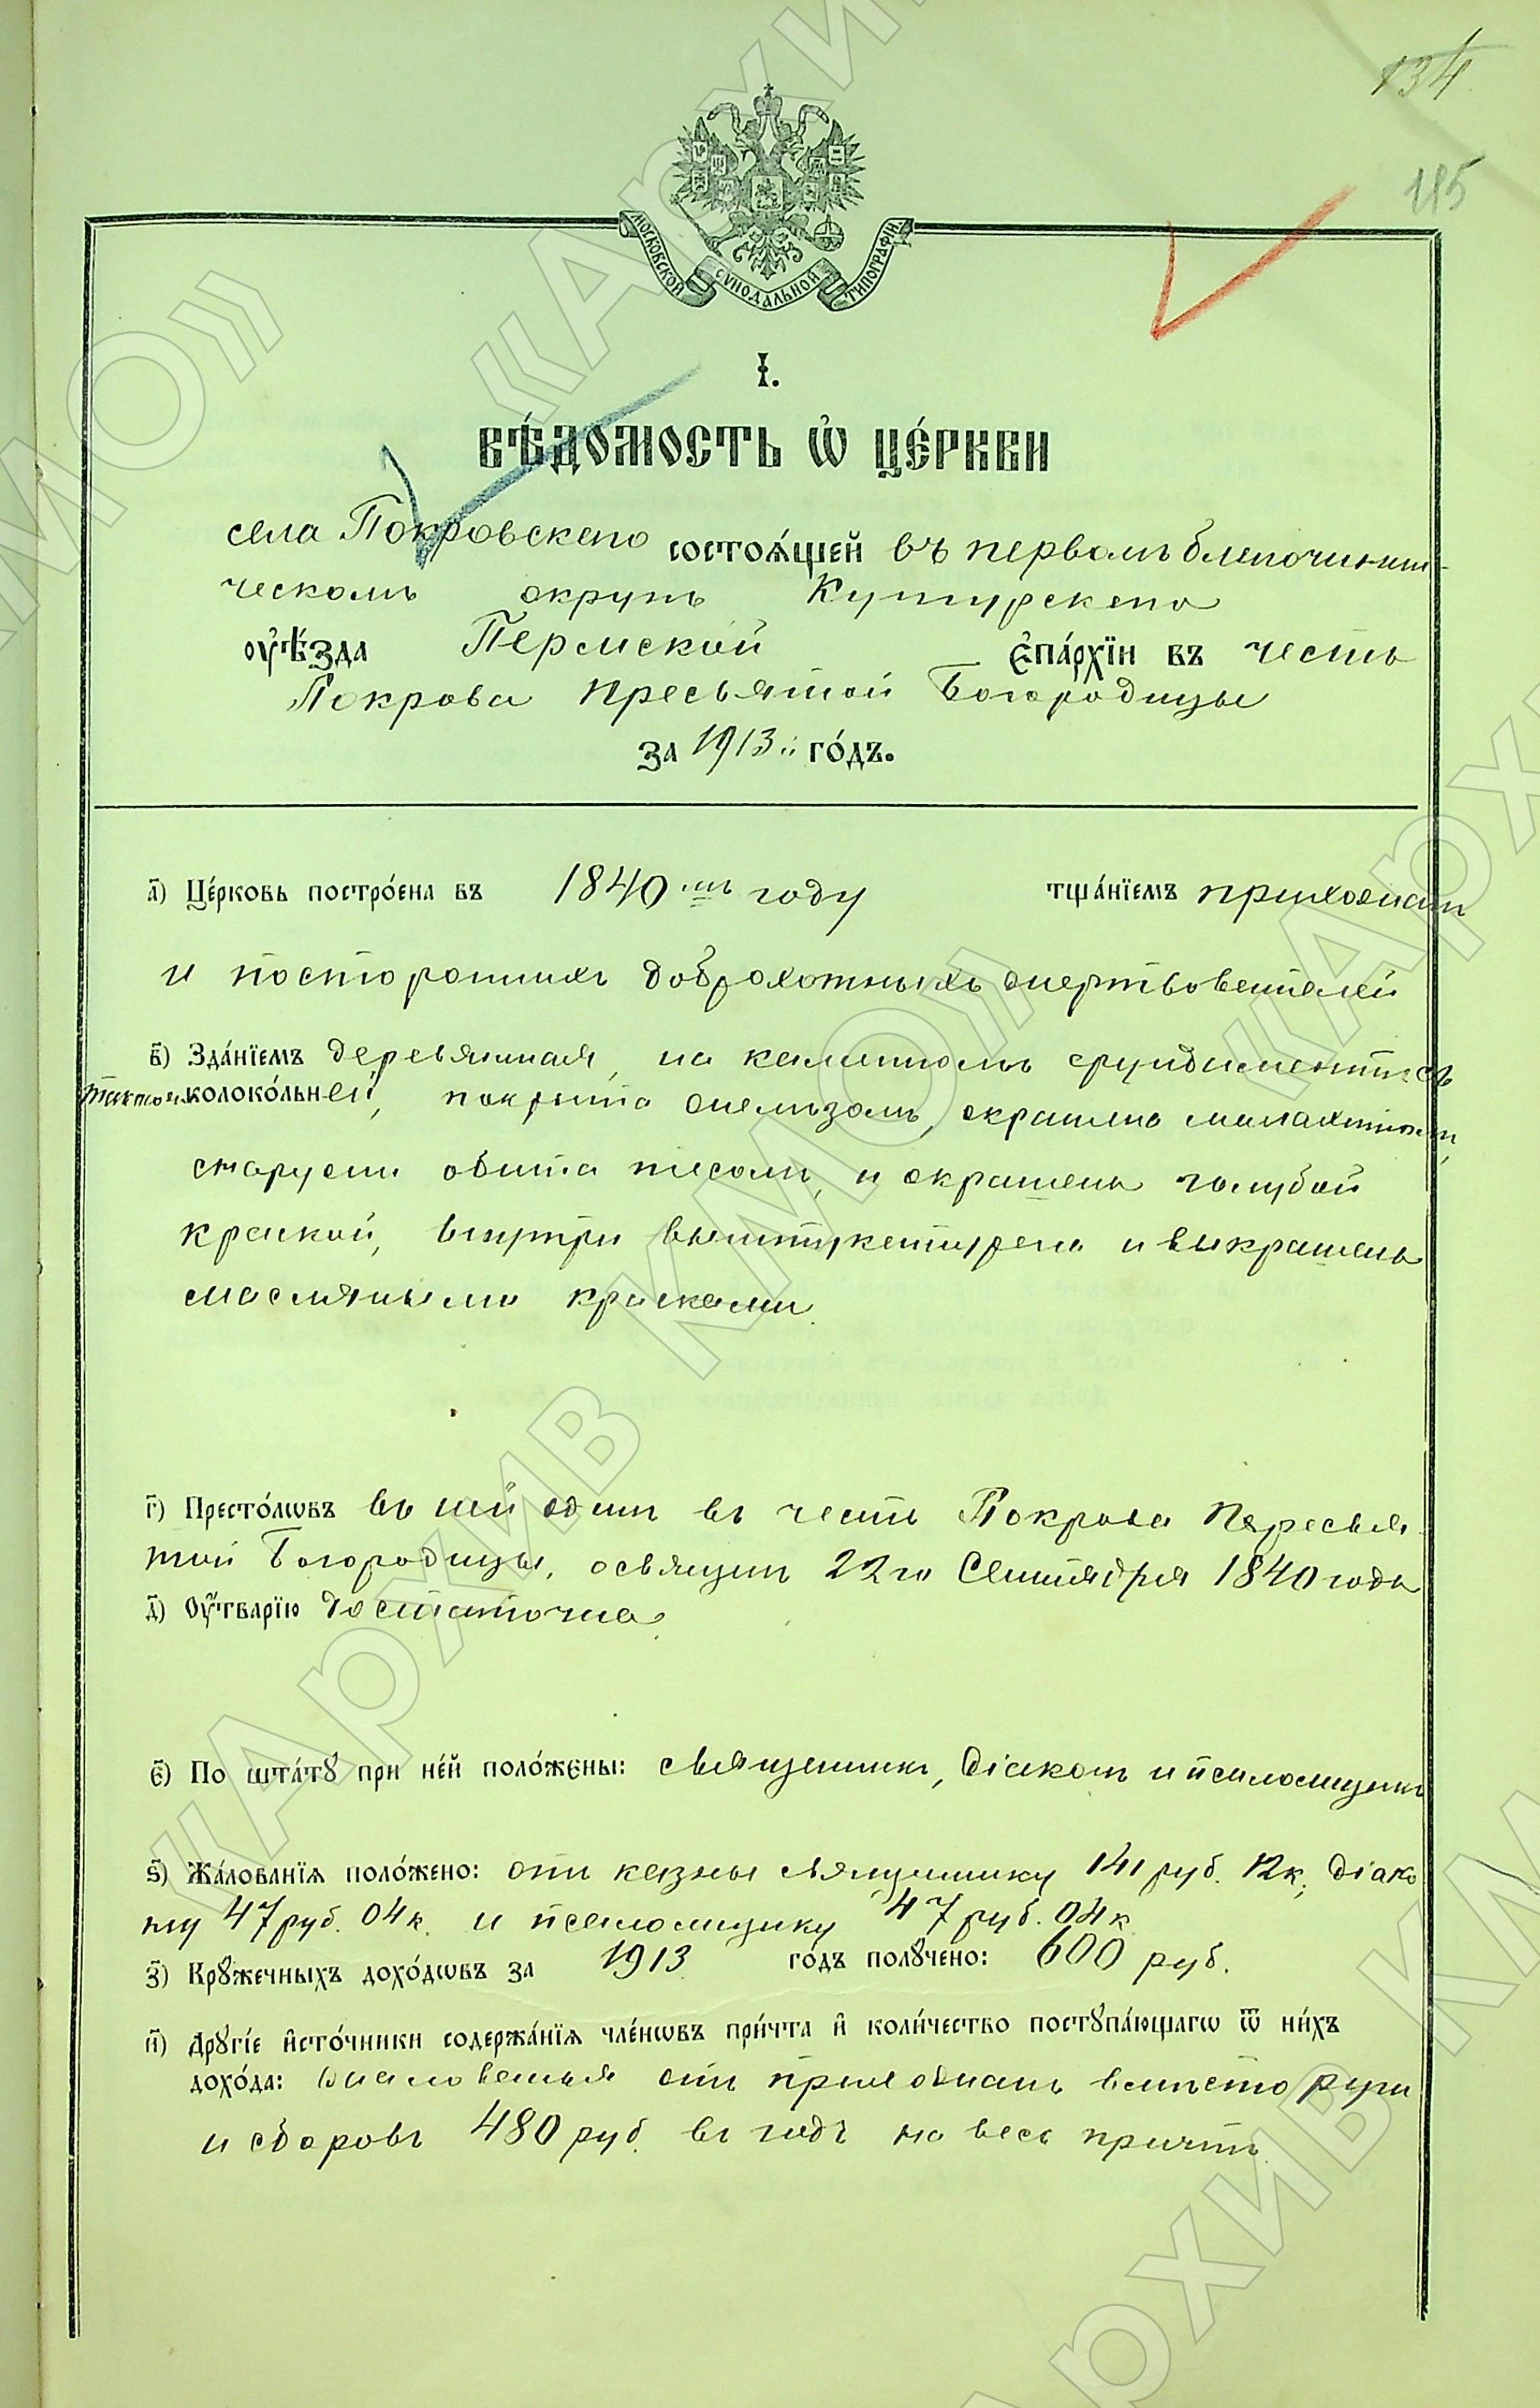 134
185
МОСКОВСКОЙ СѴНОДАЛЬНОЙ ТИПОГРАФІИ
І.
ВѢ́ДОМОСТЬ Ѽ ЦЕ́РКВИ
села Покровскаго состоѧ́щей въ первомъ благочинни-
ческомъ округѣ Кунгурскаго
оуѣ́зда Пермской є҆па́рхїи въ честь
Покрова Пресвятой Богородицы
за 1913й го́дъ.
а҃) Це́рковь постро́ена въ 1840мъ году тща́нїемъ прихожанъ
и постороннихъ доброхотныхъ жертвователей
в҃) Зда́нїемъ деревянная, на каменномъ фундаментѣ съ
таковой колоко́льней, покрыта желѣзомъ, окрашена малахитомъ,
снаружи обита тесомъ, и окрашена голубой
краской, внутри выштукатурена и выкрашена
масляными красками.
г҃) Престо́лѡвъ въ ней одинъ въ честь Покрова Пересвя
той Богородицы, освященъ 22го Сентября 1840 года
д҃) Оу҆́тварїю достаточна.
є҃) По шта́тꙋ при не́й поло́жены: священникъ, діаконъ и псаломщикъ
ѕ҃) Жа́лованїѧ поло́жено: отъ казны священнику 141 руб. 12 к., діако
ну 47 руб. 04 к. и псаломщику 47 руб. 04 к.
з҃) Крꙋ́жечныхъ дохо́дѡвъ за 1913 го́дъ полꙋ́чено: 600 руб.
и҃) Дрꙋгі́е и҆сто́чники содержа́нїѧ чле́нѡвъ при́чта и҆ коли́чество постꙋпа́ющагѡ ѿ ни́хъ
дохо́да: жалованья отъ прихожанъ вмѣсто руги
и сборовъ 480 руб. въ годъ на весь причтъ.
«Архив КМО»